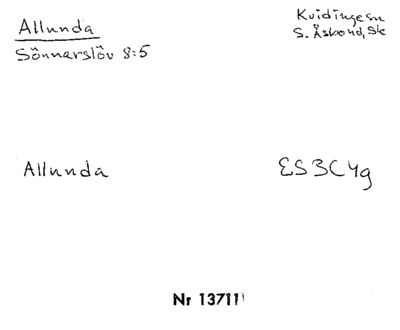 Allunda
Sönnarslöv 8:5
Kvidinge sn
S. Åsbo hd, Sk
Allunda
ES3C4g
Nr 13711